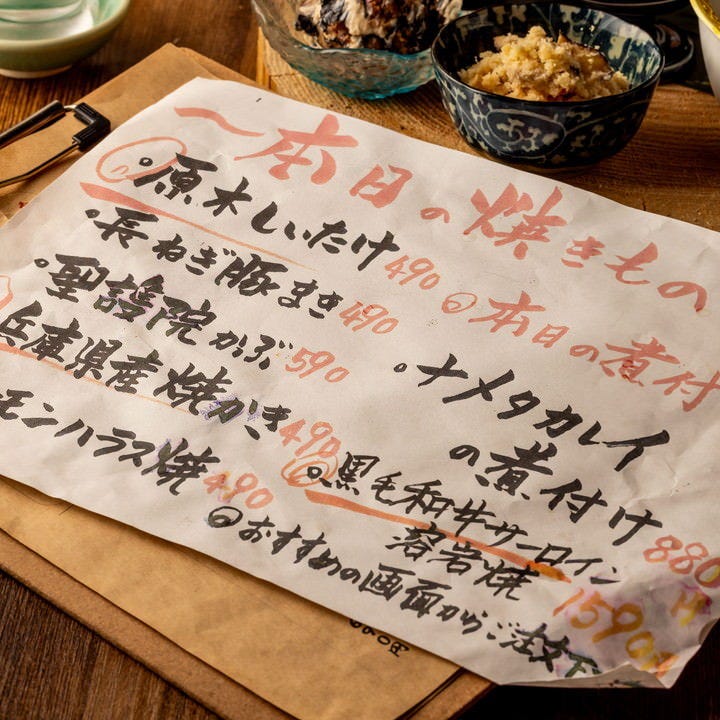 〜本日の焼きもの
原木しいたけ 490
長ねぎ豚まき 490
聖護院かぶ 590
兵庫県産焼がき 490
モンハラス焼 490
本日の煮付
ナメタカレイ
の煮付け
880円
黒毛和牛サーロイン
溶岩焼
1590円
おすすめの画面からご注文下
690円